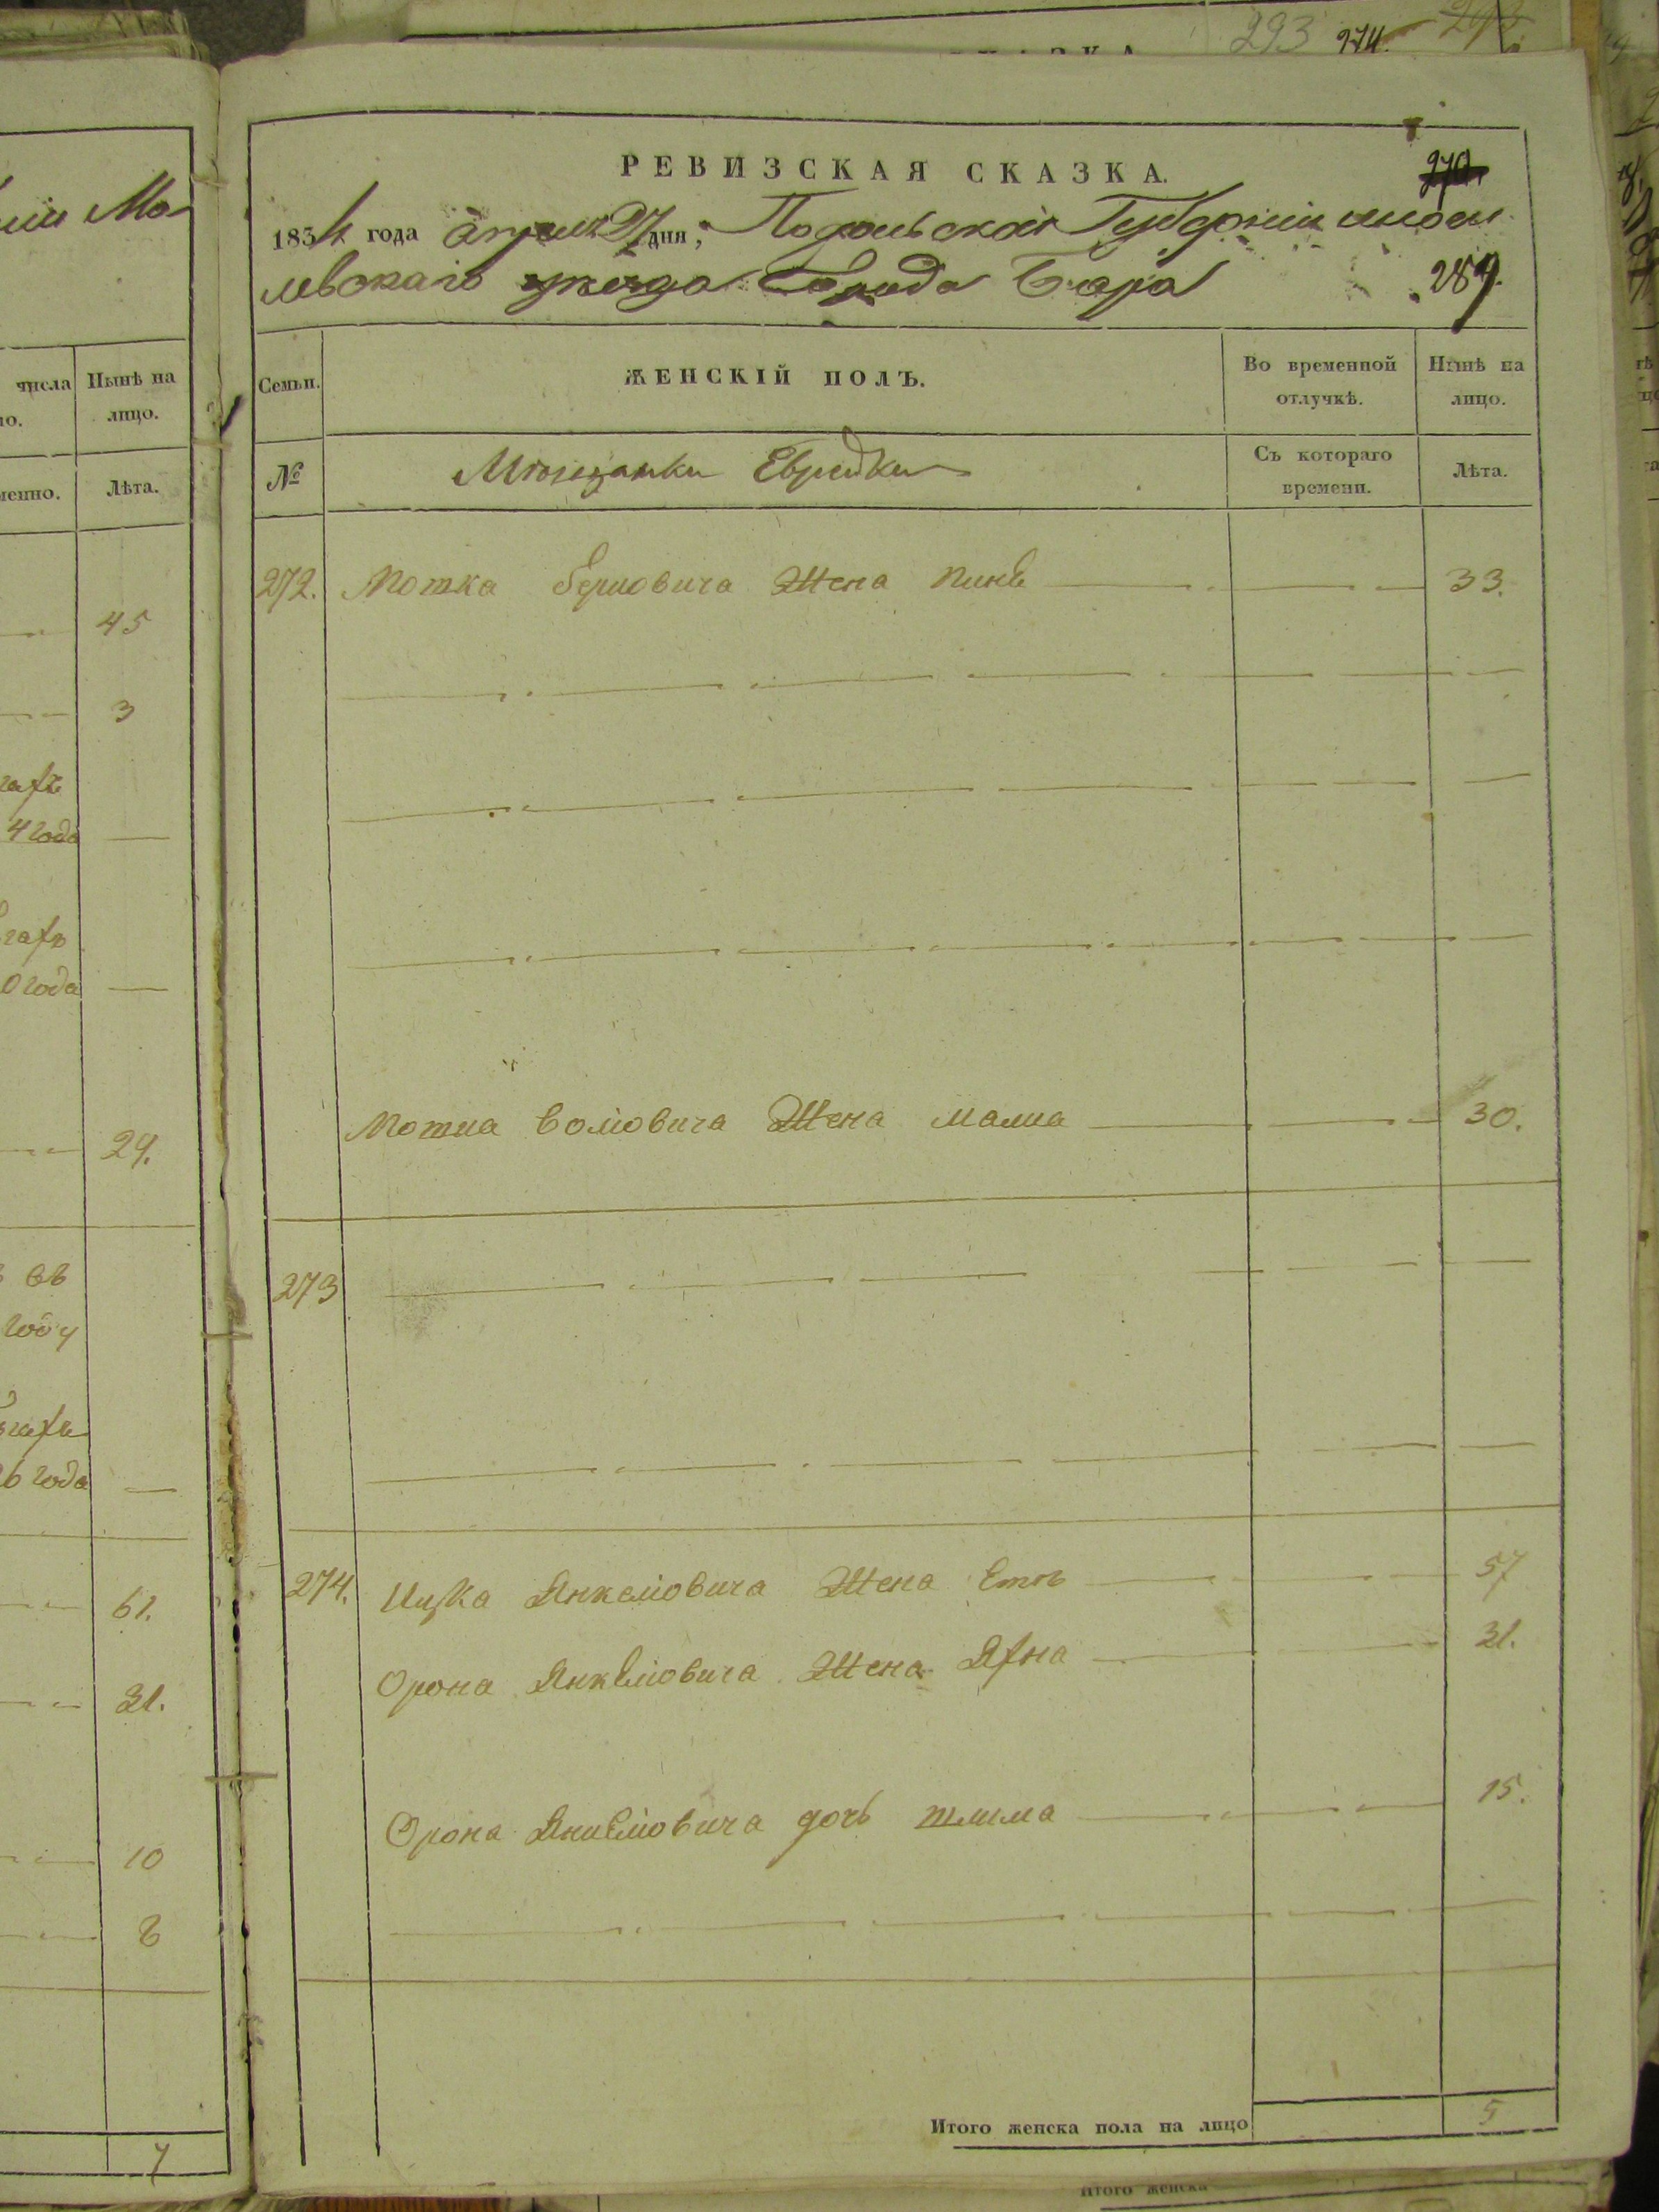 293 274. 293
РЕВИЗСКАЯ СКАЗКА.
270.
1834 года апреля 27 дня, Подольской Губернии могил
левскаго уезда Города Бара
289.
Семьи.
ЖЕНСКІЙ ПОЛЪ.
Во временной отлучкѣ.
Нынѣ на лицо.
№
Мещанки Еврейки
Съ котораго времени.
Лѣта.
272. Мошка Берковича Жена 33.
Мошка Волковича Жена Малка 30.
273
274. Ицка Янкеліовича Жена 57
Орона Янкеліовича Жена 31.
Орона Янкеліовича дочь 15.
Итого женска пола на лицо 5
Мо
числа
Нынѣ на лицо.
Лѣта.
45
3
4 года
0 года
29.
въ
году
6 года
61.
31.
10
8
7
Итого женска